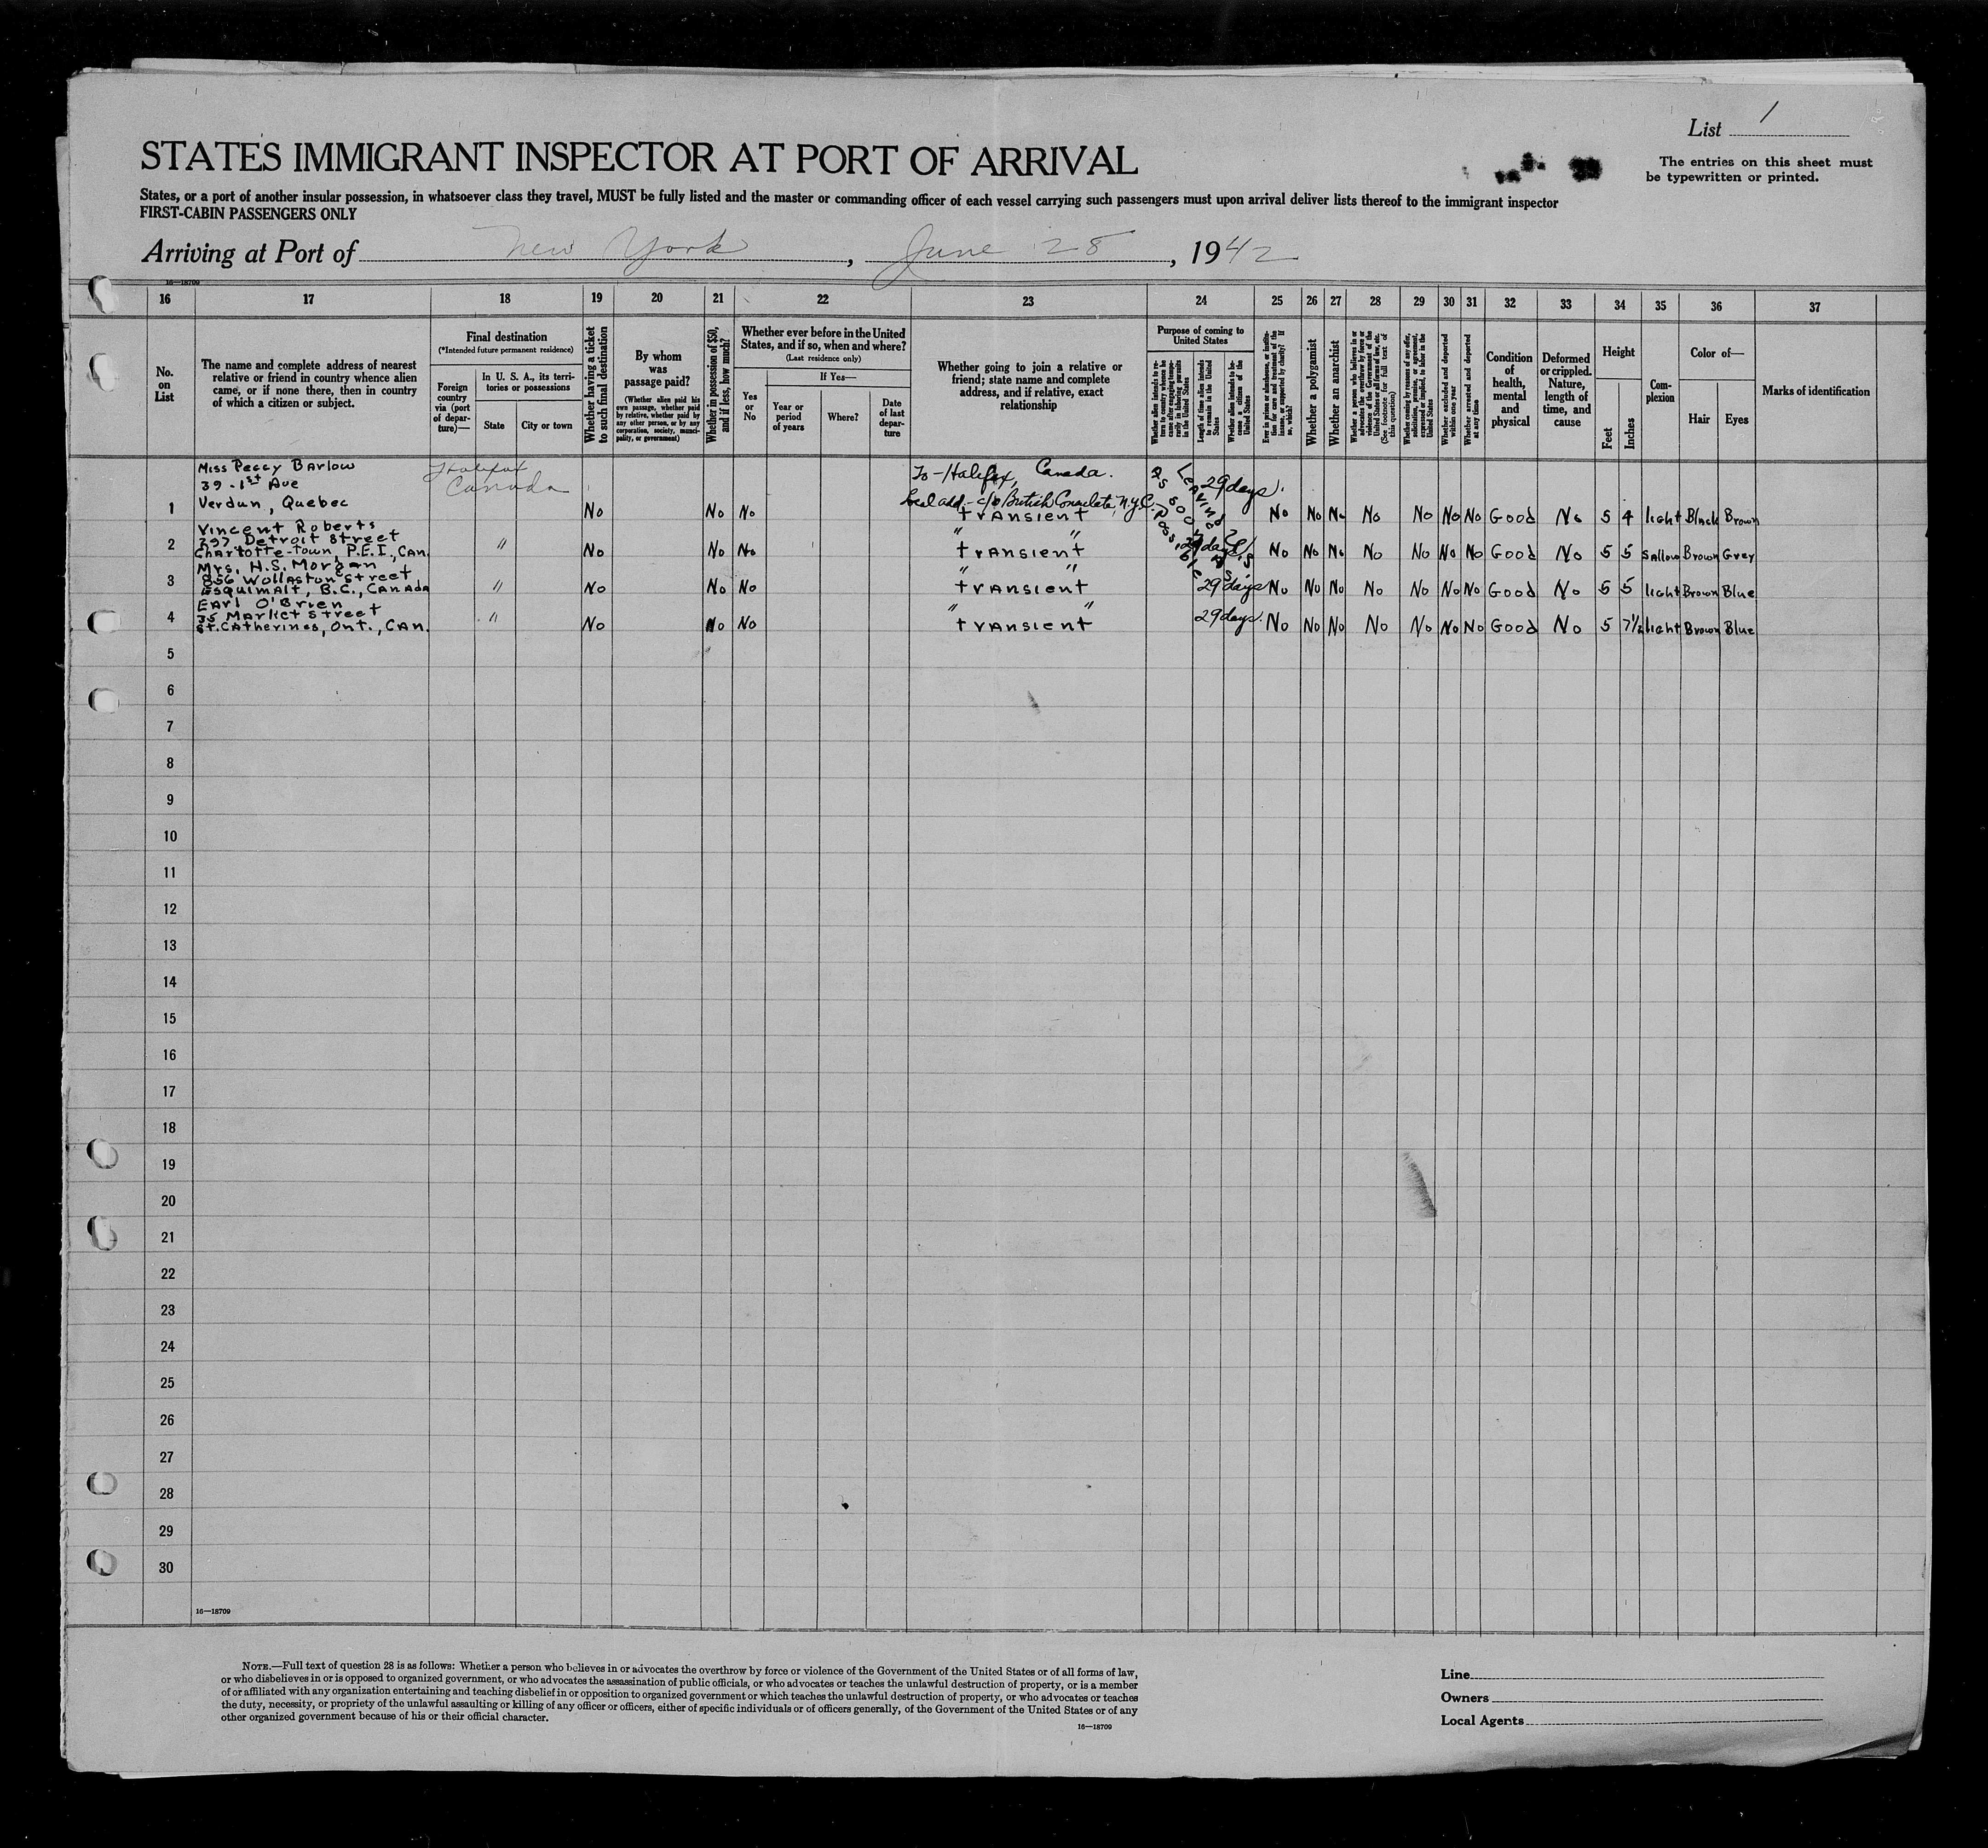 List 1
The entries on this sheet must
be typewritten or printed.
STATES IMMIGRANT INSPECTOR AT PORT OF ARRIVAL
States, or a port of another insular possession, in whatsoever class they travel, MUST be fully listed and the master or commanding officer of each vessel carrying such passengers must upon arrival deliver lists thereof to the immigrant inspector
FIRST-CABIN PASSENGERS ONLY
Arriving at Port of New York, June 28, 1942
16—18709
16 17 18 19 20 21 22 23 24 25 26 27 28 29 30 31 32 33 34 35 36 37
No.
on
List
The name and complete address of nearest
relative or friend in country whence alien
came, or if none there, then in country
of which a citizen or subject.
Final destination
(*Intended future permanent residence)
Foreign
country
via (port
of depar-
ture)—
In U. S. A., its terri-
tories or possessions
State City or town
Whether having a ticket
to such final destination
By whom
was
passage paid?
(Whether alien paid his
own passage, whether paid
by relative, whether paid by
any other person, or by any
corporation, society, munici-
pality, or government)
Whether in possession of $50,
and if less, how much?
Whether ever before in the United
States, and if so, when and where?
(Last residence only)
Yes
or
No
If Yes—
Year or
period
of years
Where?
Date
of last
depar-
ture
Whether going to join a relative or
friend; state name and complete
address, and if relative, exact
relationship
Purpose of coming to
United States
Whether alien intends to re-
turn to country whence he
came after engaging tempo-
rarily in laboring pursuits
in the United States
Length of time alien intends
to remain in the United
States
Whether alien intends to be-
come a citizen of the
United States
Ever in prison or almshouse, or institu-
tion for care and treatment of the
insane, or supported by charity? If
so, which?
Whether a polygamist
Whether an anarchist
Whether a person who believes in or
advocates the overthrow by force or
violence of the Government of the
United States or all forms of law, etc.
(See footnote for full text of
this question)
Whether coming by reason of any offer,
solicitation, promise, or agreement,
expressed or implied, to labor in the
United States
Whether excluded and deported
within one year
Whether arrested and deported
at any time
Condition
of
health,
mental
and
physical
Deformed
or crippled.
Nature,
length of
time, and
cause
Height
Feet
Inches
Com-
plexion
Color of—
Hair Eyes
Marks of identification
Miss Peggy Barlow
39 - 1st Ave
Verdun, Quebec
Halifax
Canada
To - Halifax, Canada.
Local add. - c/o British Consulate, N.Y.C.
Leaving U.S. as soon as possible
1 No No No transient 29 days. No No No No No No No Good No 5 4 light Black Brown
Vincent Roberts
297 Detroit Street
Charlotte-town, P.E.I., CAN.
2 " No No No " " transient 29 days No No No No No No No Good No 5 5 sallow Brown Grey
Mrs. H.S. Morgan
856 Wollaston Street
Esquimalt, B.C., CANADA
3 " No No No " " transient 29 days No No No No No No No Good No 5 5 light Brown Blue
Earl O'Brien
35 Market Street
St. Catherines, Ont., CAN.
4 " No No No " " transient 29 days. No No No No No No No Good No 5 7½ light Brown Blue
5
6
7
8
9
10
11
12
13
14
15
16
17
18
19
20
21
22
23
24
25
26
27
28
29
30
16—18709
NOTE.—Full text of question 28 is as follows: Whether a person who believes in or advocates the overthrow by force or violence of the Government of the United States or of all forms of law,
or who disbelieves in or is opposed to organized government, or who advocates the assassination of public officials, or who advocates or teaches the unlawful destruction of property, or is a member
of or affiliated with any organization entertaining and teaching disbelief in or opposition to organized government or which teaches the unlawful destruction of property, or who advocates or teaches
the duty, necessity, or propriety of the unlawful assaulting or killing of any officer or officers, either of specific individuals or of officers generally, of the Government of the United States or of any
other organized government because of his or their official character.
16—18709
Line
Owners
Local Agents